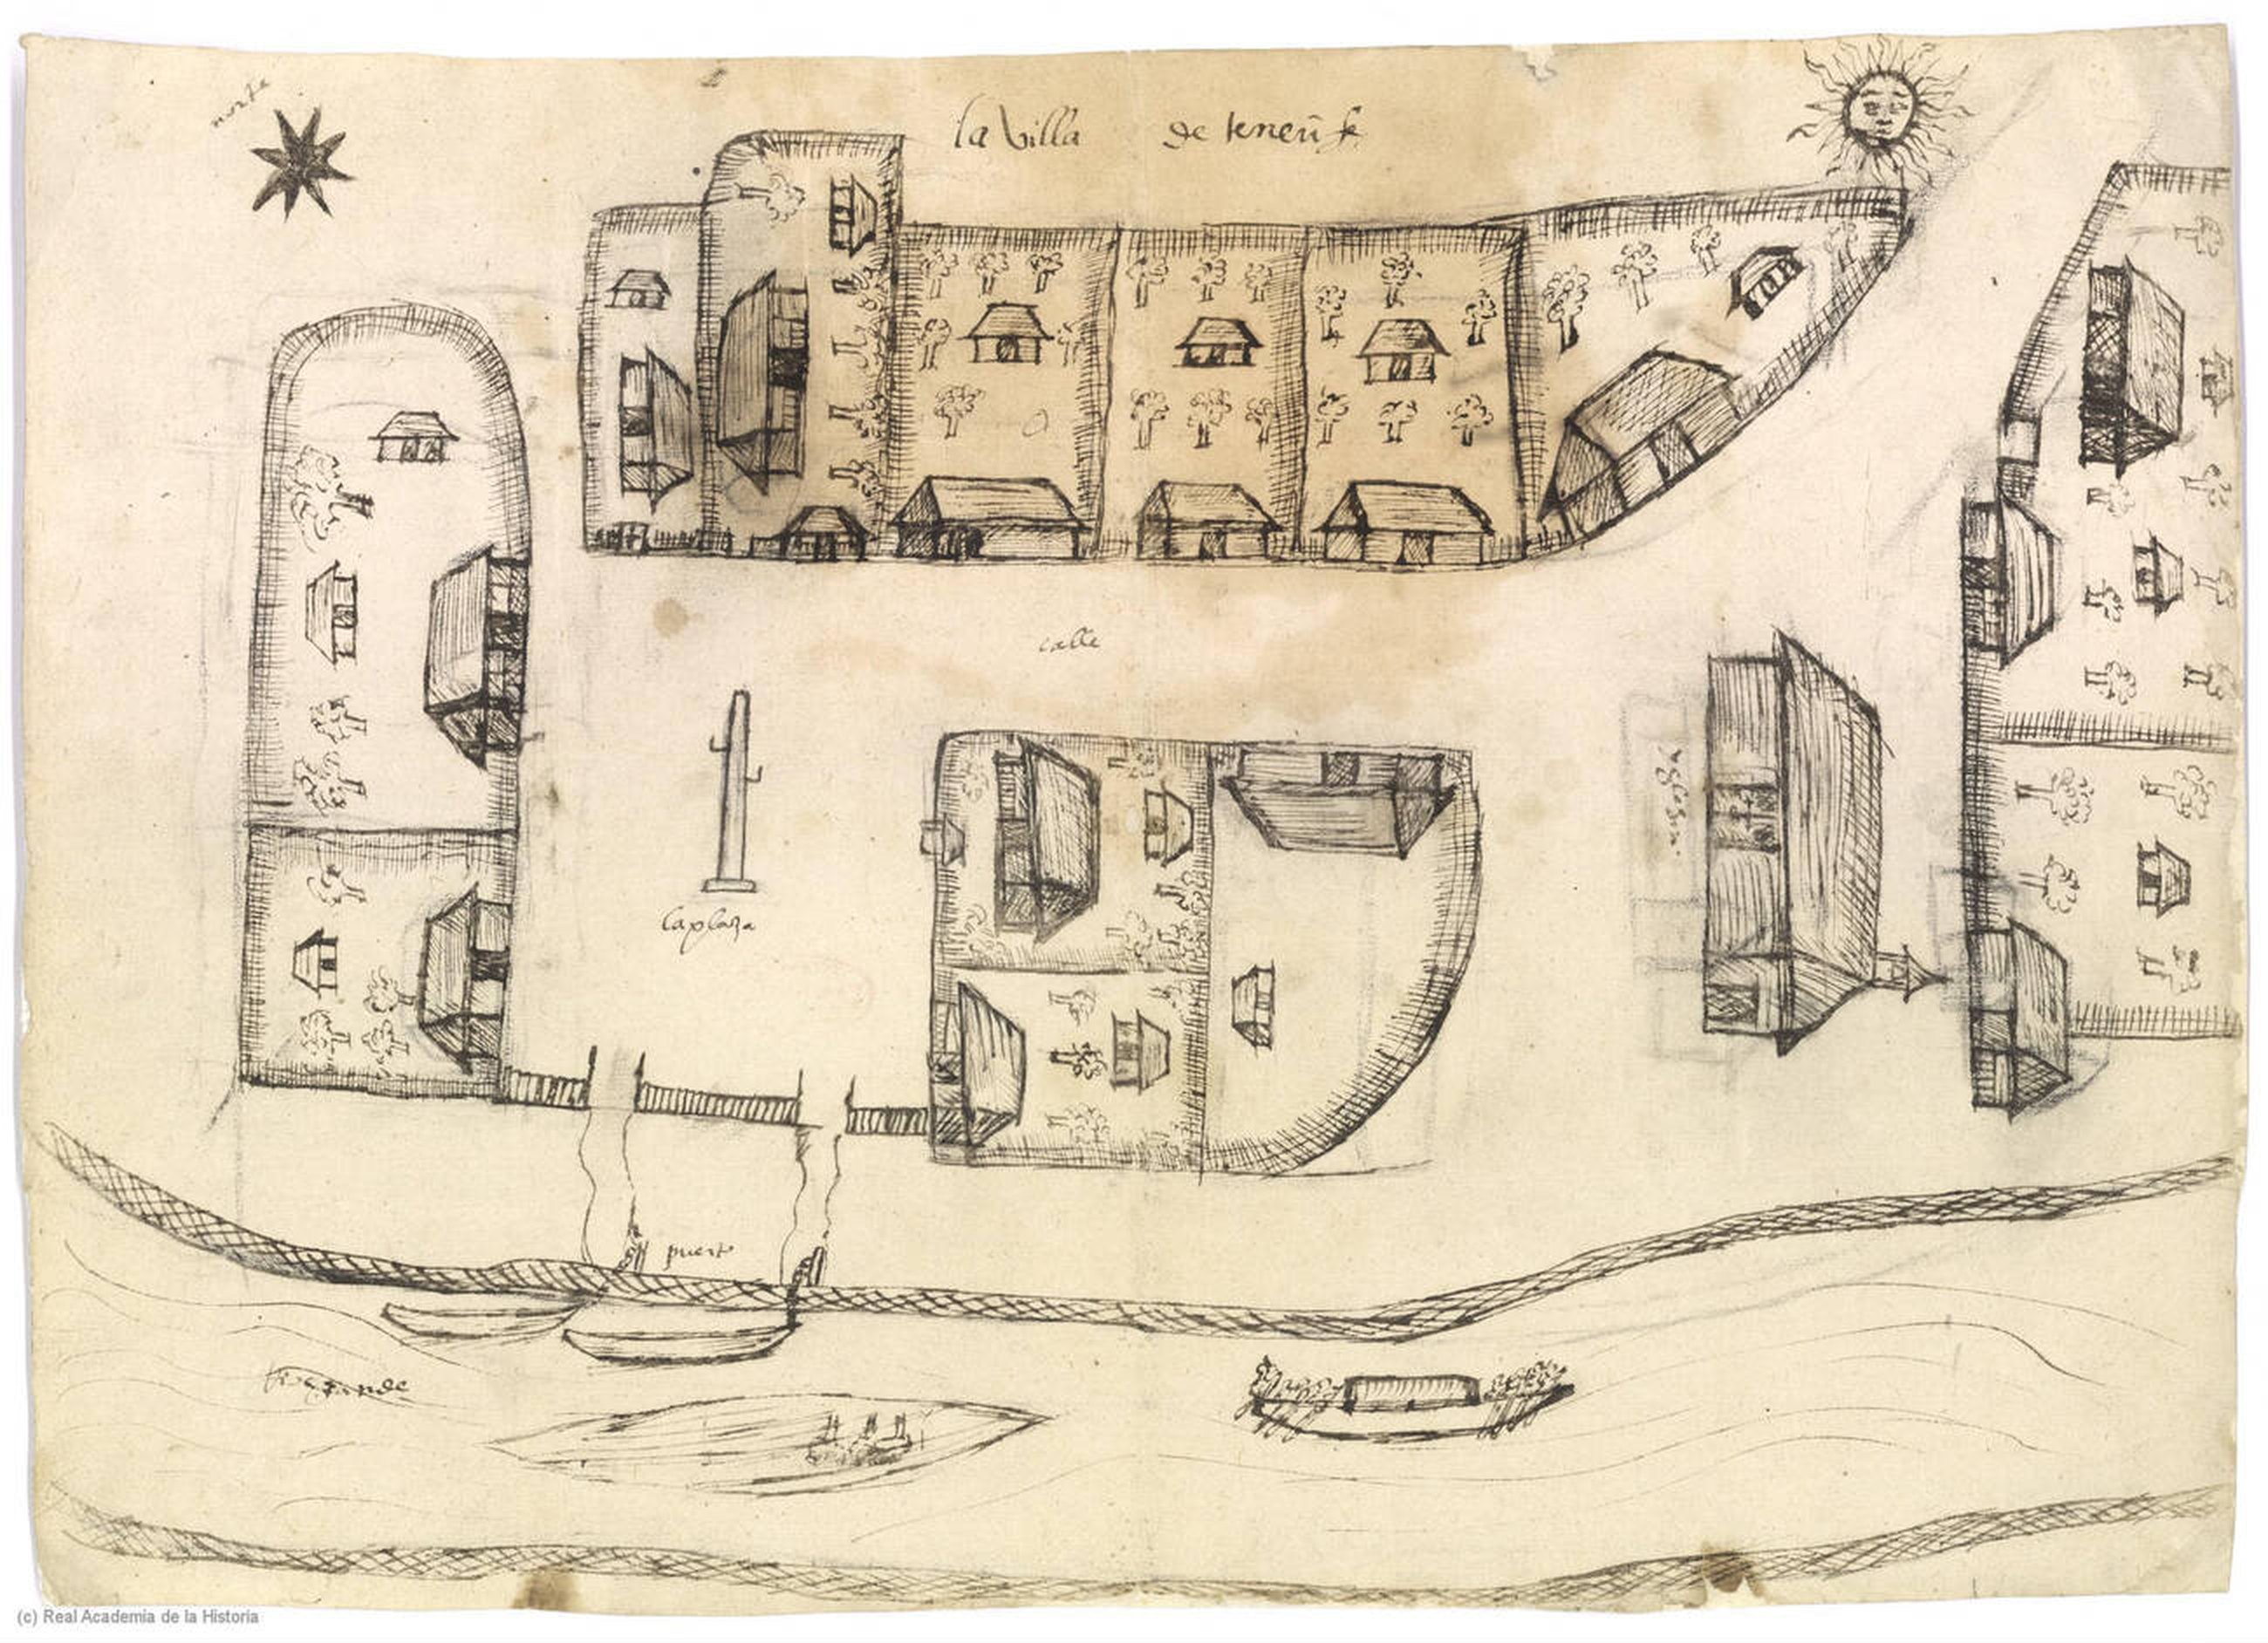 norte
la villa de tenerife
calle
yglesia.
la plaza
puerto
rio grande
(c) Real Academia de la Historia